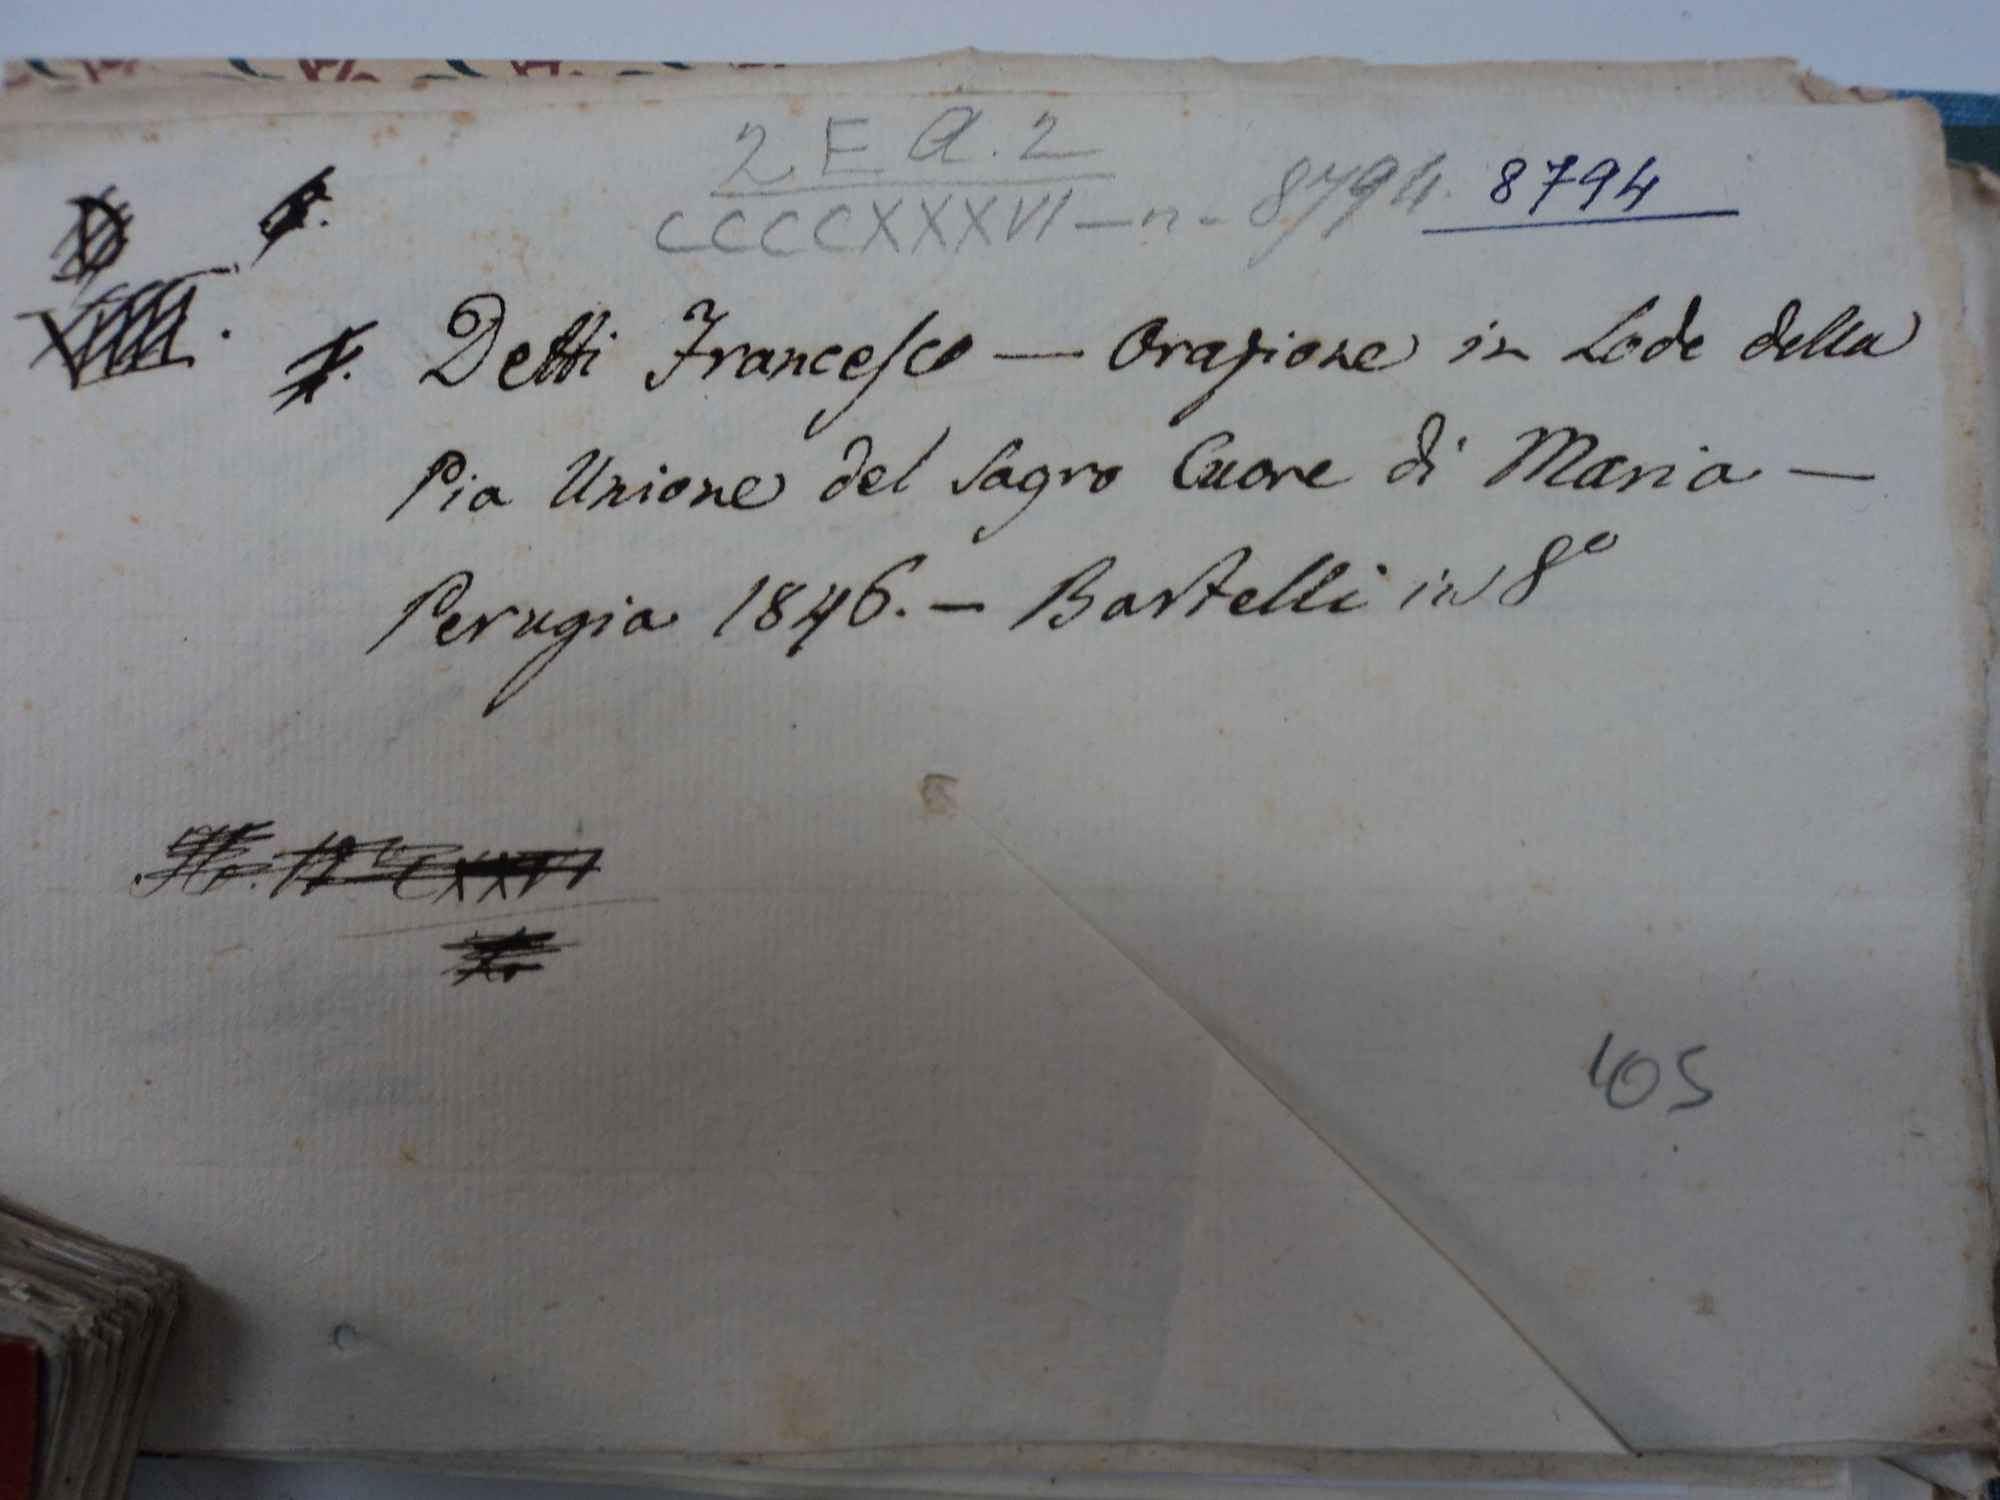 2 E A. 2
CCCCXXXVI — n. 8794. 8794
Detti Francesco — Orazione in Lode della
Pia Unione del Sagro Cuore di Maria —
Perugia 1846. — Bartelli in 8º
CXXVI
105